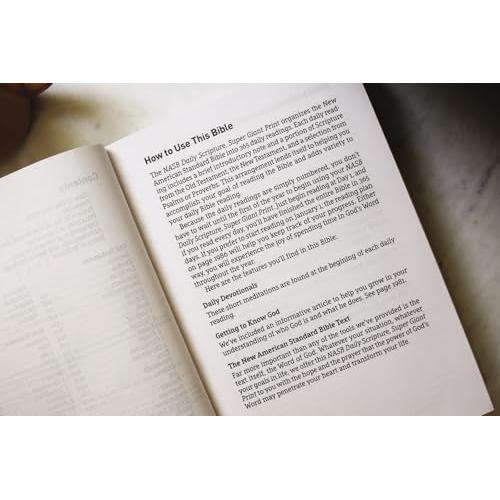 How to Use This Bible
The NASB Daily Scripture, Super Giant Print organizes the New
American Standard Bible into 365 daily readings. Each daily read-
ing includes a brief introductory note and a portion of Scripture
from the Old Testament, the New Testament, and a selection from
Psalms or Proverbs. This arrangement lends itself to helping you
accomplish your goal of reading the Bible and adds variety to
your daily Bible reading.
Because the daily readings are simply numbered, you don't
have to wait until the first of year to begin using your NASB
Daily Scripture, Super Giant Print. Just begin reading at day 1, and
if you read every day, you'll have finished the entire Bible in 365
days. If you prefer to start reading on January 1, the reading plan
on page 1986 will help you keep track of your progress. Either
way, you will experience the joy of spending time in God's Word
throughout the year.
Here are the features you'll find in this Bible:
Daily Devotionals
These short meditations are found at the begining of each daily
reading.
Getting to Know God
We've included an informative article to help you grow in your
understanding of who God is and what he does. See page 1981.
The New American Standard Bible Text
Far more important than any of the tools we've provided is the
text itself, the Word of God. Whatever your situation, whatever
your goals in life, we offer this NASB Daily Scripture, Super Giant
Print to you with the hope and the prayer that the power of God's
Word may penetrate your heart and transform your life.